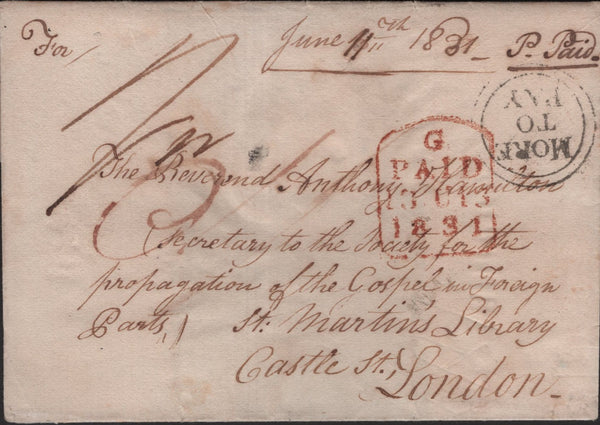 For
June 11th 1831
P. Paid.
MORE
TO
PAY
G
PAID
1831
The Reverend Anthony Hamilton
Secretary to the Society for the
propagation of the Gospel in Foreign
Parts, St. Martin's Library
Castle St.,
London.